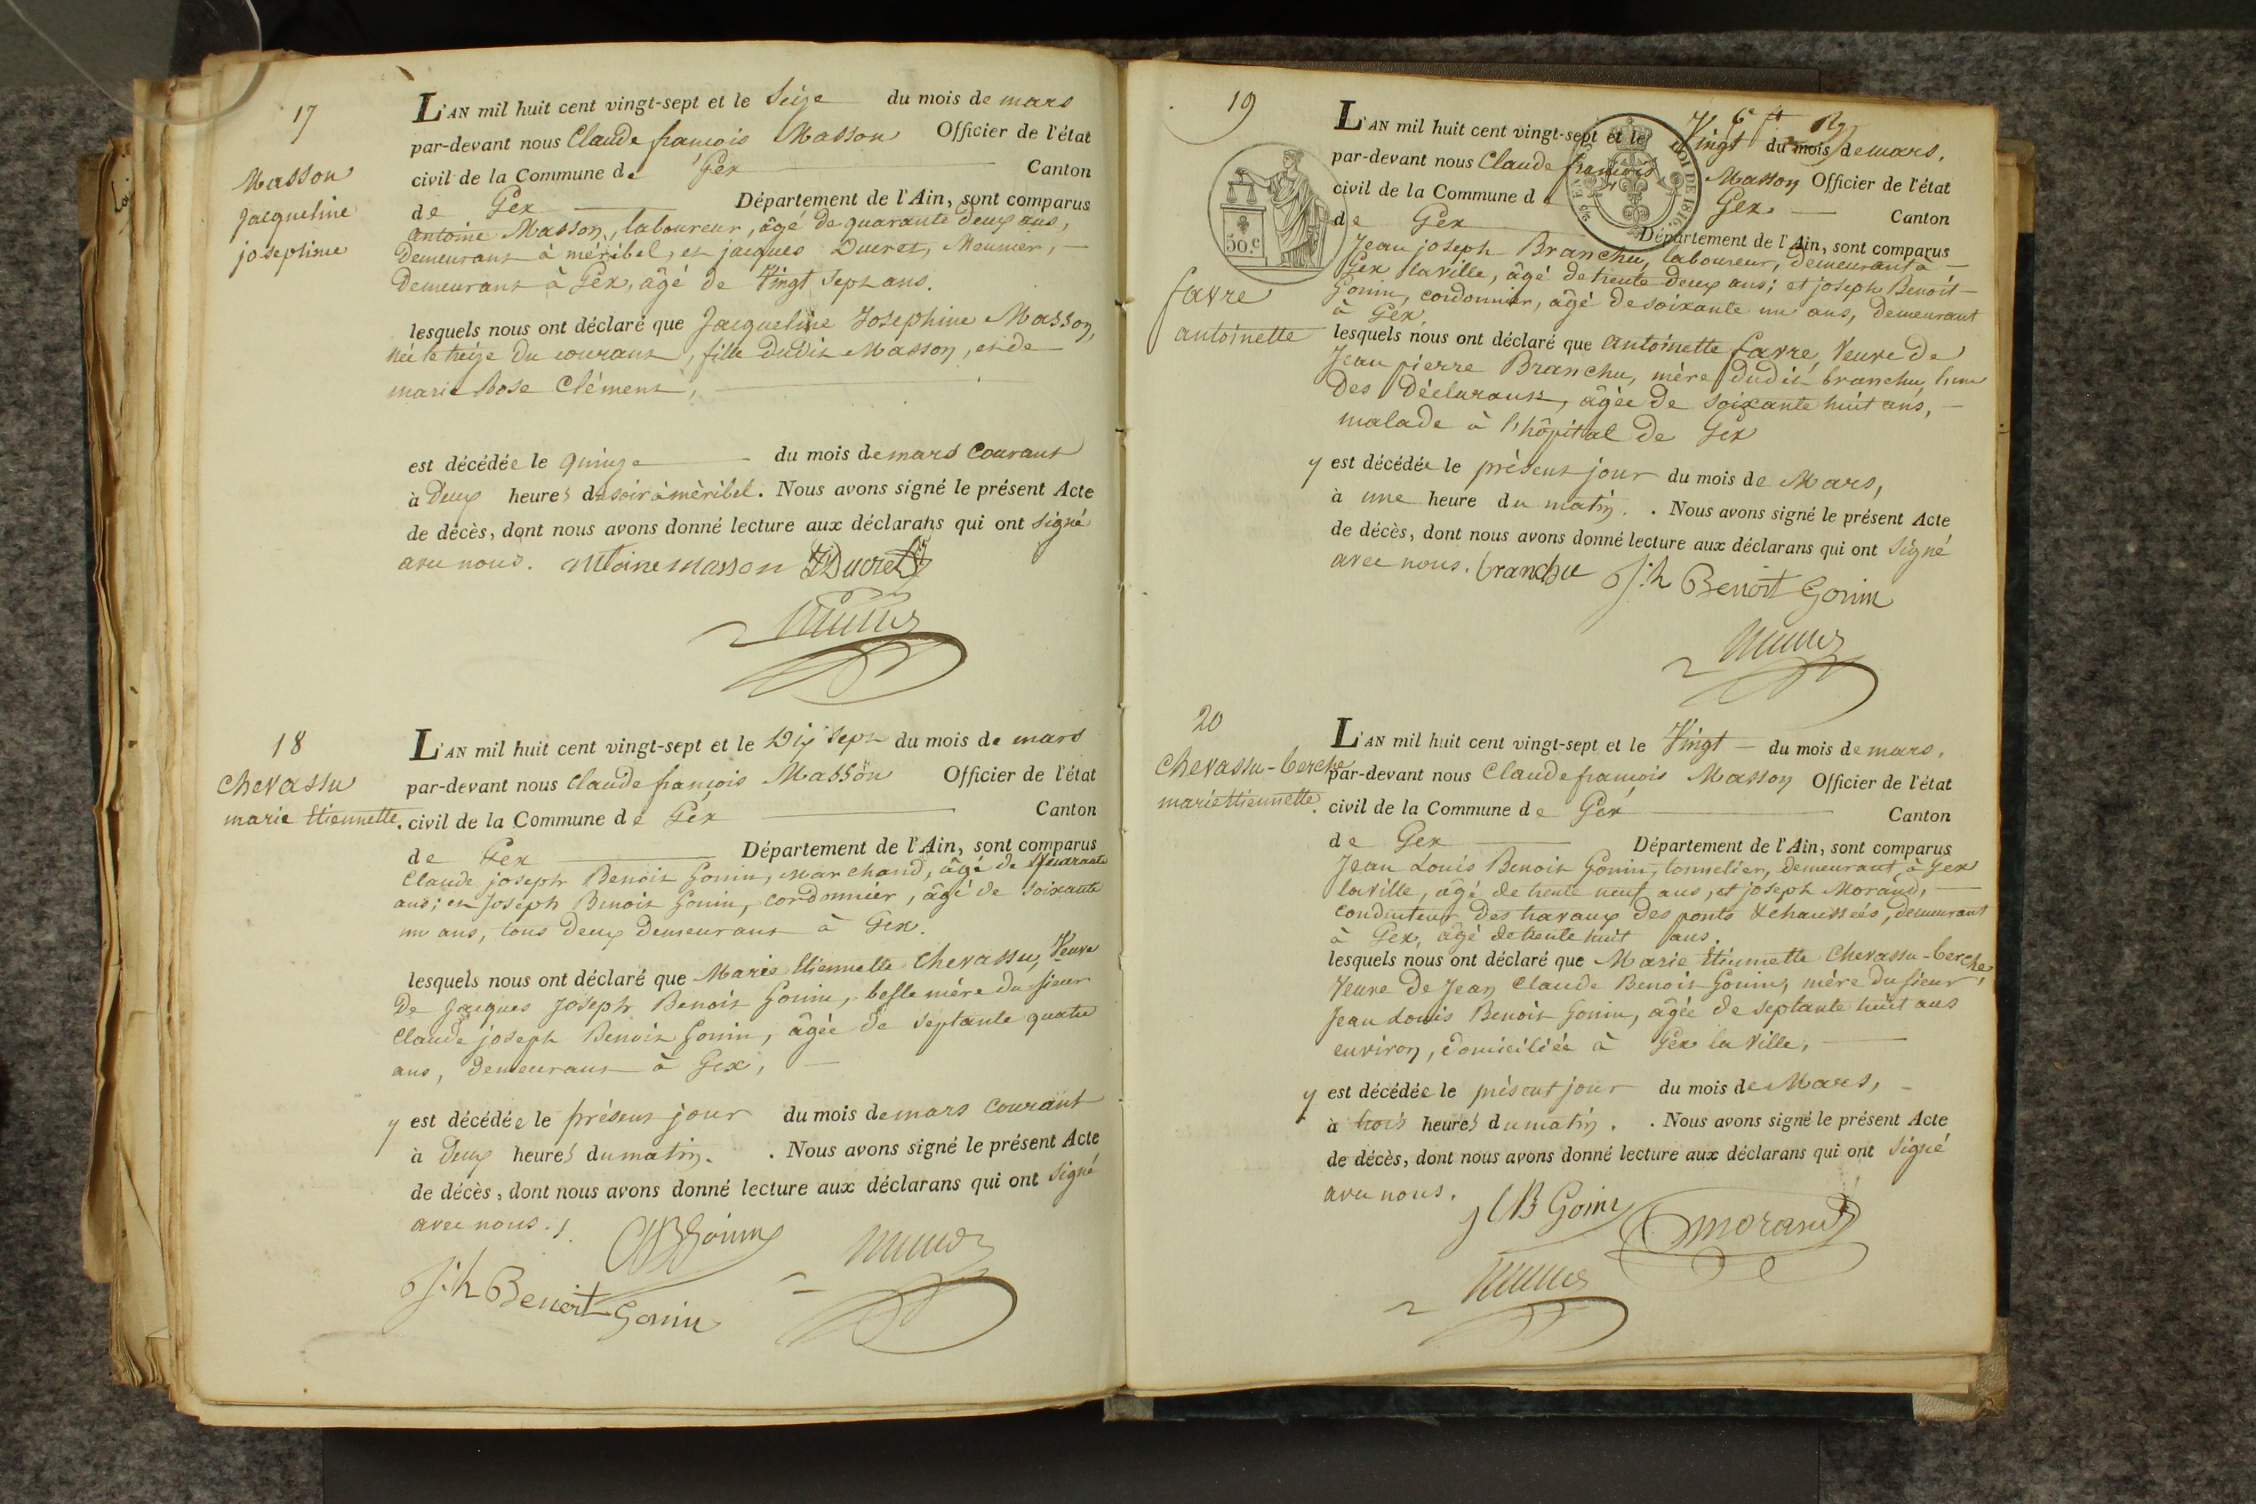 17
Masson
Jacqueline
josephine
L'AN mil huit cent vingt-sept et le Seize du mois de mars
par-devant nous Claude françois Masson Officier de l'état
civil de la Commune de Gex Canton
de Gex Département de l'Ain, sont comparus
antoine Masson, laboureur, âgé de quarante deux ans,
Demeurant à méribel, et jacques Ducret, Meunier,
Demeurant à Gex, âgé de Vingt Sept ans.
lesquels nous ont déclaré que Jacqueline Josephine Masson,
née le treize du courant, fille dudit Masson, et de
marie Rose Clément,
est décédée le quinze du mois de mars Courant
à Deux heures du soir à mèribel. Nous avons signé le présent Acte
de décès, dont nous avons donné lecture aux déclarans qui ont signé
avec nous. antoine masson JDucret
18
Chevassu
marie Etiennette.
L'AN mil huit cent vingt-sept et le Dix Sept du mois de mars
par-devant nous Claude françois Masson Officier de l'état
civil de la Commune de Gex Canton
de Gex Département de l'Ain, sont comparus
Claude joseph Benoit Gonin, Marchand, âgé de Quarante
ans; et Joseph Benoit Gonin, cordonnier, âgé de soixante
un ans, tous deux demeurant à Gex.
lesquels nous ont déclaré que Marie Etiennette Chevassu, Veuve
De Jacques Joseph Benoit Gonin, belle mère du sieur
Claude joseph Benoit Gonin, âgée de septante quatre
ans, demeurant à Gex,
y est décédée le présent jour du mois de mars courant
à deux heures du matin. . Nous avons signé le présent Acte
de décès, dont nous avons donné lecture aux déclarans qui ont Signé
avec nous.
CJBGonin
J.h Benoit Gonin
19
favre
antoinette
30.c
LOI DE 1816.
L'AN mil huit cent vingt-sept et le Vingt du mois de mars,
par-devant nous Claude françois Masson Officier de l'état
civil de la Commune de Gex Canton
de Gex Département de l'Ain, sont comparus
Jean joseph Branchu, laboureur, demeurant à
Gex laville, âgé de trente deux ans; et joseph Benoit
Gonin, cordonnier, âgé de soixante un ans, demeurant
à Gex
lesquels nous ont déclaré que antoinette favre, Veuve de
Jean pierre Branchu, mère dudit branchu, l'un
Des Déclarans, âgée de soixante huit ans,
malade à l'hôpital de Gex
y est décédée le présent jour du mois de Mars,
à une heure du matin. . Nous avons signé le présent Acte
de décès, dont nous avons donné lecture aux déclarans qui ont Signé
avec nous. branchu J.h Benoit Gonin
20
Chevassu-berche
marie Etiennette.
L'AN mil huit cent vingt-sept et le Vingt du mois de mars,
par-devant nous Claude françois Masson Officier de l'état
civil de la Commune de Gex Canton
de Gex Département de l'Ain, sont comparus
Jean Louis Benoit Gonin, tonnelier, demeurant à Gex
laville, âgé de trente neuf ans, et joseph Morand,
conducteur des travaux des ponts & chaussées, demeurant
à Gex, âgé de trente huit ans.
lesquels nous ont déclaré que Marie Etiennette Chevassu-berche,
Veuve de Jean Claude Benoit Gonin, mère du sieur
Jean Louis Benoit Gonin, âgée de septante huit ans
environ, domiciliée à Gex la ville,
y est décédée le présent jour du mois de Mars,
à trois heures du matin. . Nous avons signé le présent Acte
de décès, dont nous avons donné lecture aux déclarans qui ont Signé
avec nous. JLB Gonin morand